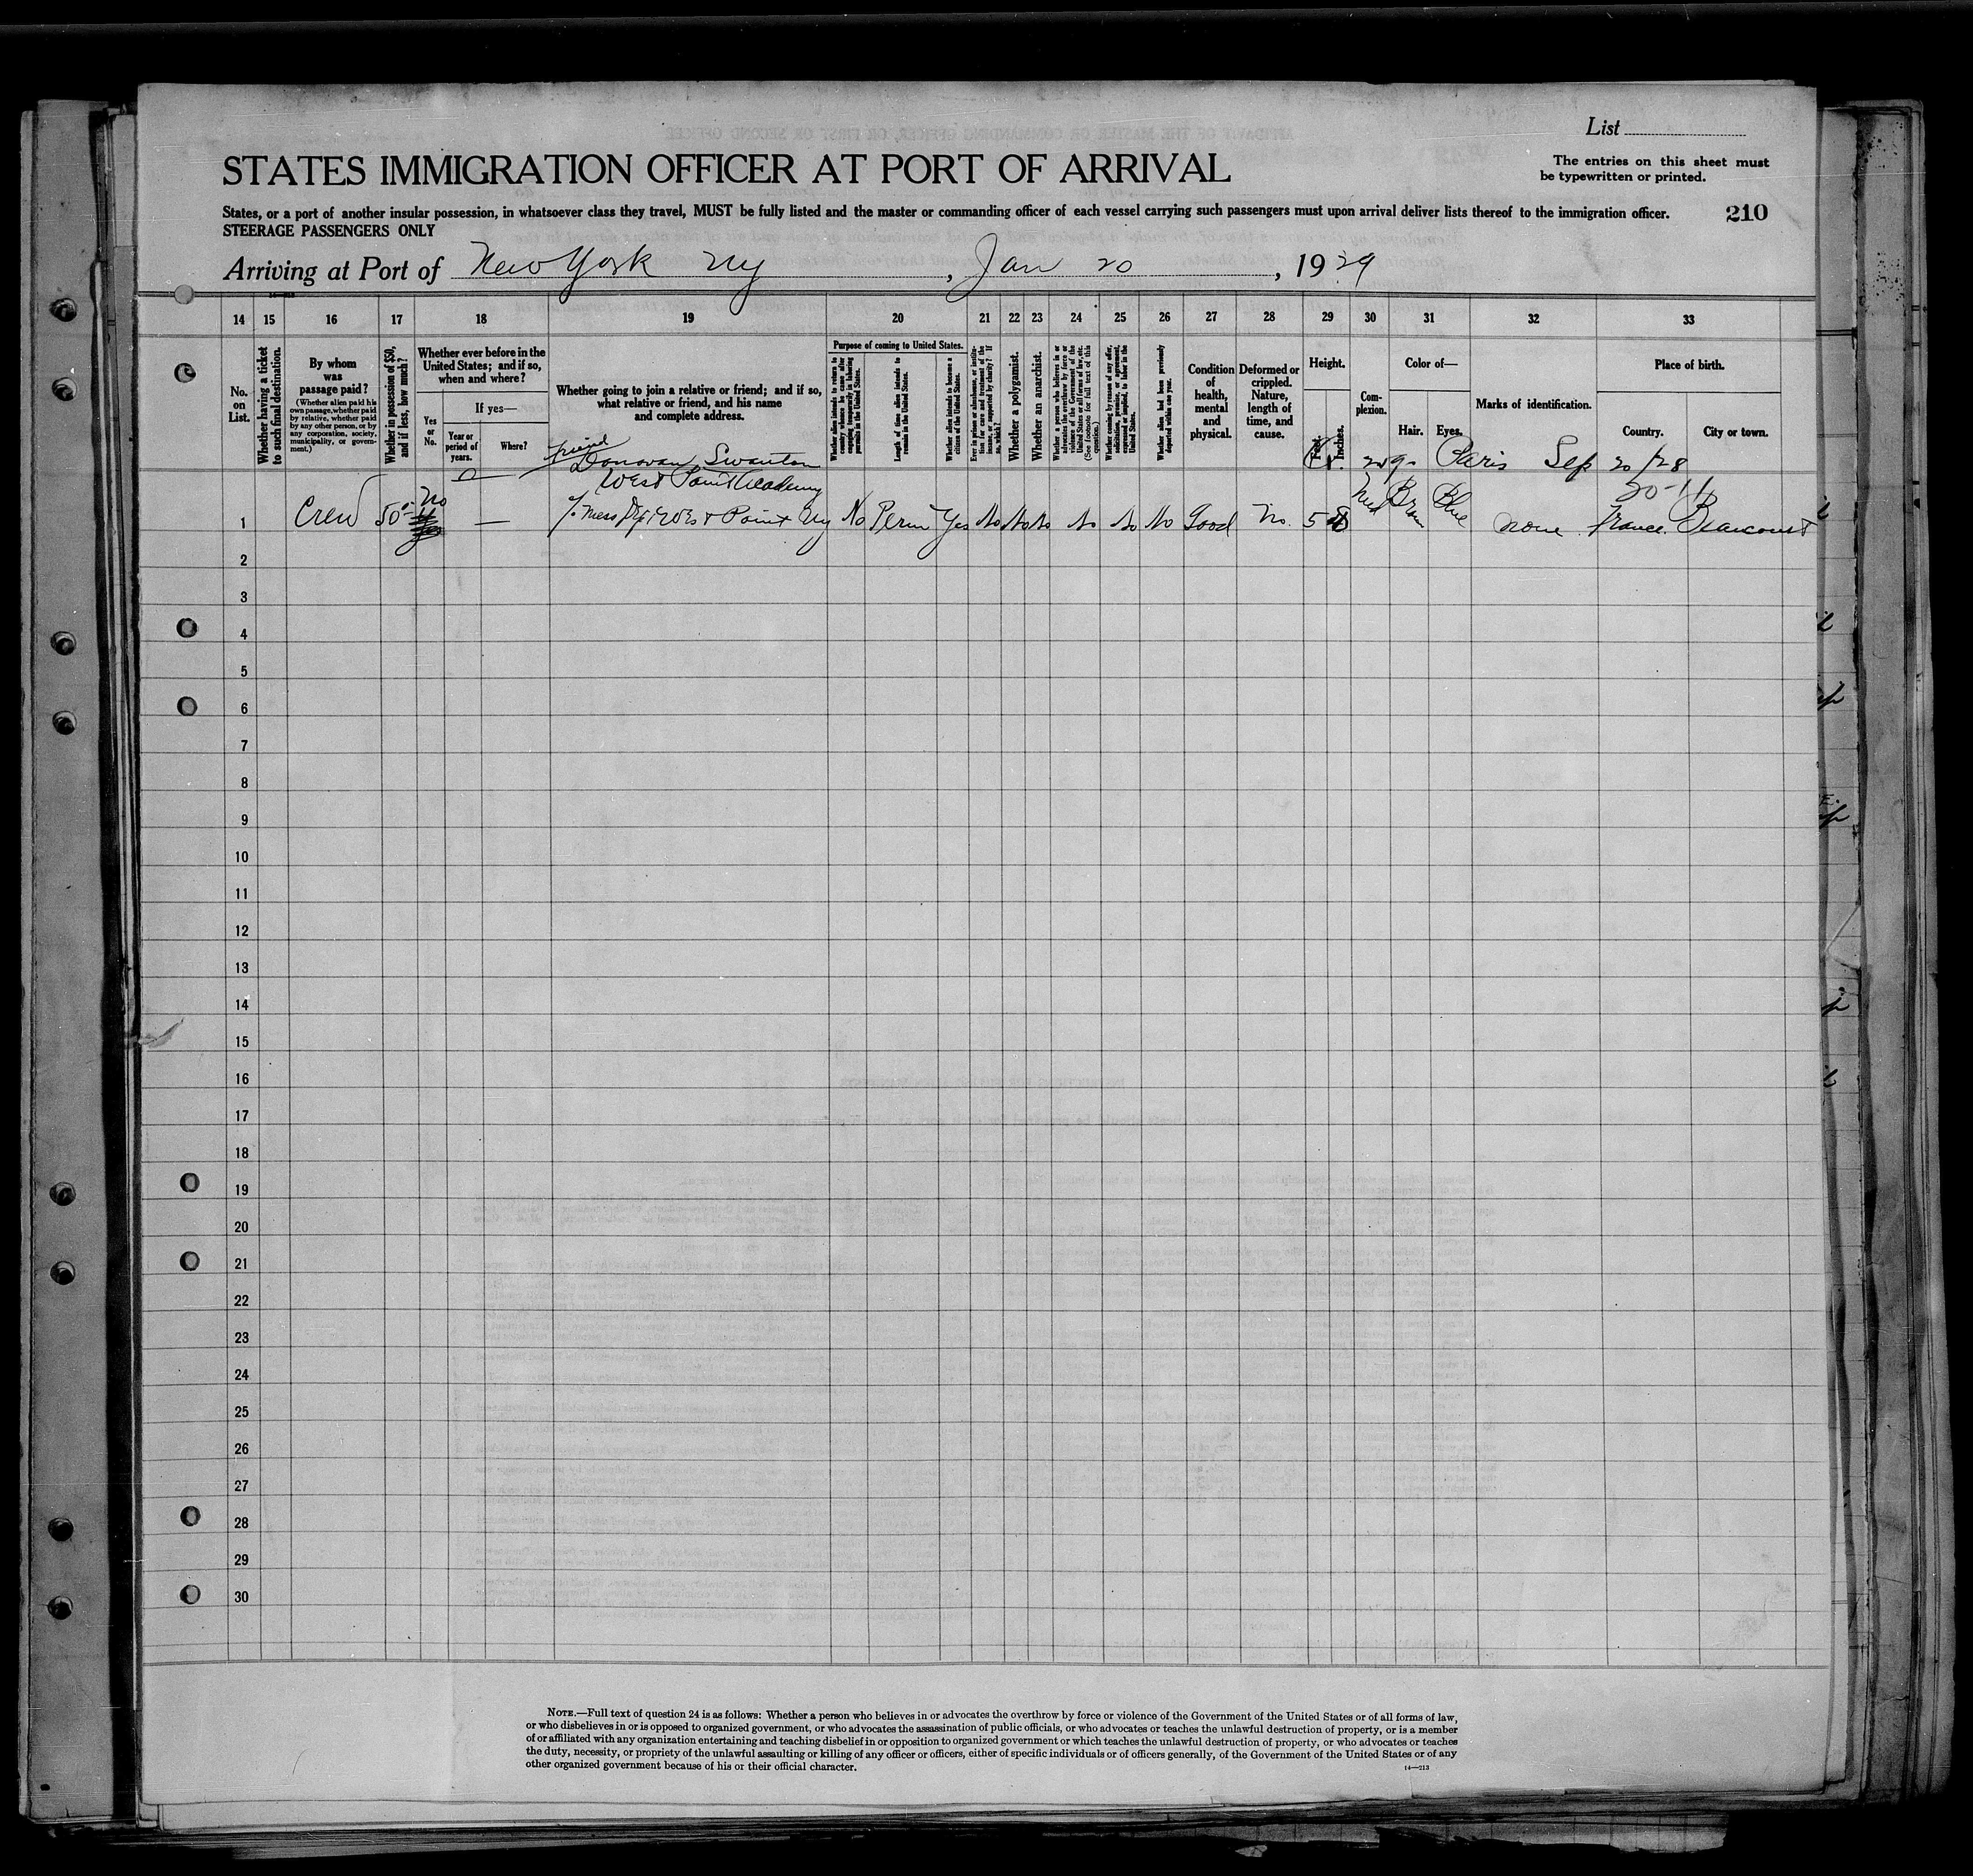 List
The entries on this sheet must
be typewritten or printed.
STATES IMMIGRATION OFFICER AT PORT OF ARRIVAL
States, or a port of another insular possession, in whatsoever class they travel, MUST be fully listed and the master or commanding officer of each vessel carrying such passengers must upon arrival deliver lists thereof to the immigration officer.
210
STEERAGE PASSENGERS ONLY
Arriving at Port of New York Ny, Jan 20, 1929
14 15 16 17 18 19 20 21 22 23 24 25 26 27 28 29 30 31 32 33
No.
on
List.
Whether having a ticket
to such final destination.
By whom
was
passage paid?
(Whether alien paid his
own passage, whether paid
by relative, whether paid
by any other person, or by
any corporation, society,
municipality, or govern-
ment.)
Whether in possession of $50,
and if less, how much?
Whether ever before in the
United States; and if so,
when and where?
Yes
or
No.
If yes—
Year or
period of
years.
Where?
Whether going to join a relative or friend; and if so,
what relative or friend, and his name
and complete address.
Purpose of coming to United States.
Whether alien intends to return to
country whence he came after
engaging temporarily in laboring
pursuits in the United States.
Length of time alien intends to
remain in the United States.
Whether alien intends to become a
citizen of the United States.
Ever in prison or almshouse, or institu-
tion for care and treatment of the
insane, or supported by charity? If
so, which?
Whether a polygamist.
Whether an anarchist.
Whether a person who believes in or
advocates the overthrow by force or
violence of the Government of the
United States or all forms of law, etc.
(See footnote for full text of this
question.)
Whether coming by reason of any offer,
solicitation, promise, or agreement,
expressed or implied, to labor in the
United States.
Whether alien had been previously
deported within one year.
Condition
of
health,
mental
and
physical.
Deformed or
crippled.
Nature,
length of
time, and
cause.
Height.
Inches.
Com-
plexion.
Color of—
Hair. Eyes.
Marks of identification.
Place of birth.
Country. City or town.
friend
Donovan Swanton
Paris Sep 20/28
West Point Academy
1 Crew 50 no West Point Ny No Perm Yes No No No No No No Good No. 5 8 Med Brown Blue none France
2
3
4
5
6
7
8
9
10
11
12
13
14
15
16
17
18
19
20
21
22
23
24
25
26
27
28
29
30
NOTE.—Full text of question 24 is as follows: Whether a person who believes in or advocates the overthrow by force or violence of the Government of the United States or of all forms of law,
or who disbelieves in or is opposed to organized government, or who advocates the assassination of public officials, or who advocates or teaches the unlawful destruction of property, or is a member
of or affiliated with any organization entertaining and teaching disbelief in or opposition to organized government or which teaches the unlawful destruction of property, or who advocates or teaches
the duty, necessity, or propriety of the unlawful assaulting or killing of any officer or officers, either of specific individuals or of officers generally, of the Government of the United States or of any
other organized government because of his or their official character.
14—213